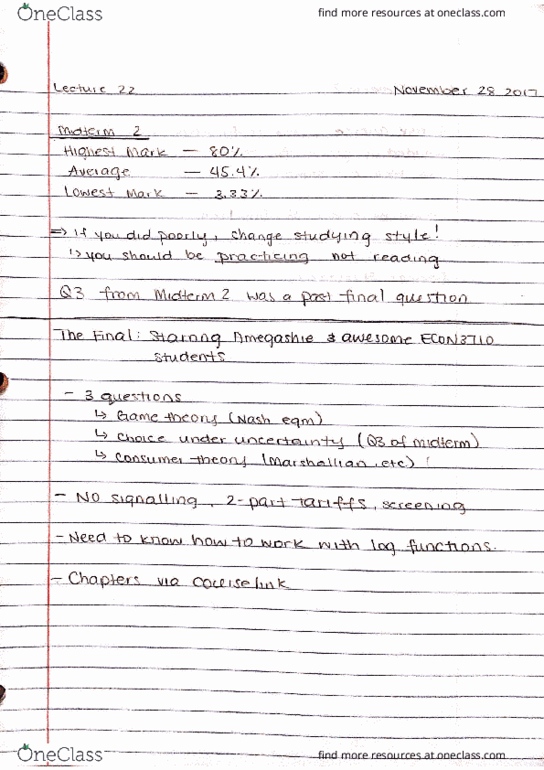 OneClass
find more resources at oneclass.com
Lecture 22
November 28 2017
Midterm 2
Highest Mark — 80%
Average — 45.4%
Lowest Mark — 3.33%
⇒ If you did poorly, change studying style!
↳ you should be practicing not reading
Q3 from Midterm 2 was a past final question
The Final: Starring Amegashie & awesome ECON3710
students
- 3 questions
↳ Game theory (Nash eqm)
↳ choice under uncertainty (Q3 of midterm)
↳ consumer theory (Marshallian, etc)
- No signalling, 2-part tariffs, screening
- Need to know how to work with log functions.
- Chapters via courselink
OneClass
find more resources at oneclass.com